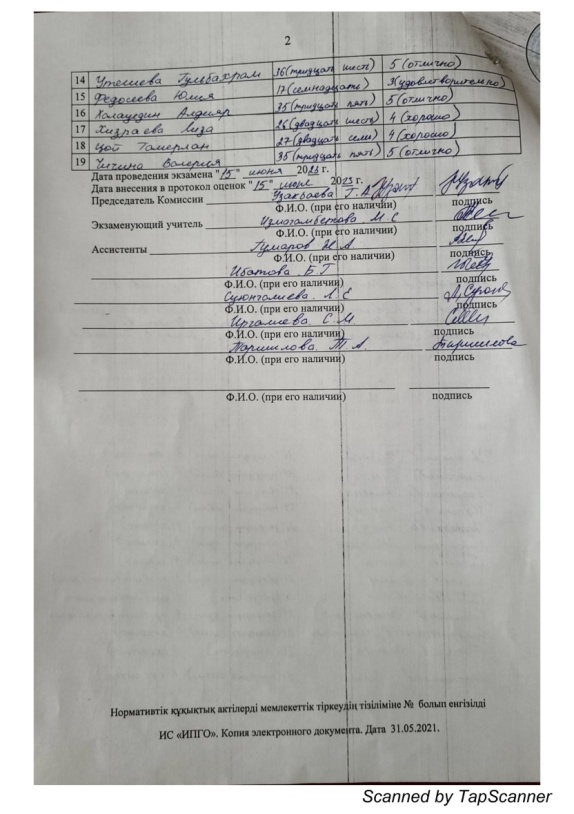 2
14 Утешева Гульбахрам 36 (тридцать шесть) 5 (отлично)
15 Федосеева Юлия 17 (семнадцать) 3 (удовлетворительно)
16 Халауедин Алдияр 35 (тридцать пять) 5 (отлично)
17 Хизраева Лиза 26 (двадцать шесть) 4 (хорошо)
18 Цой Тамерлан 27 (двадцать семь) 4 (хорошо)
19 Чичина Валерия 35 (тридцать пять) 5 (отлично)
Дата проведения экзамена "15" июня 2023 г.
Дата внесения в протокол оценок "15" июня 2023 г.
Председатель Комиссии Узакбаева Г. А.
Ф.И.О. (при его наличии) подпись
Экзаменующий учитель М. С
Ф.И.О. (при его наличии) подпись
Ассистенты Гумаров Н. А.
Ф.И.О. (при его наличии) подпись
Ибатова Б. Г
Ф.И.О. (при его наличии) подпись
Суюнгалиева Л. Е
Ф.И.О. (при его наличии) подпись
Иргалиева С. М.
Ф.И.О. (при его наличии) подпись
Паршилова Т. А.
Ф.И.О. (при его наличии) подпись
Ф.И.О. (при его наличии) подпись
Нормативтік құқықтық актілерді мемлекеттік тіркеудің тізіліміне № болып енгізілді
ИС «ИПГО». Копия электронного документа. Дата 31.05.2021.
Scanned by TapScanner